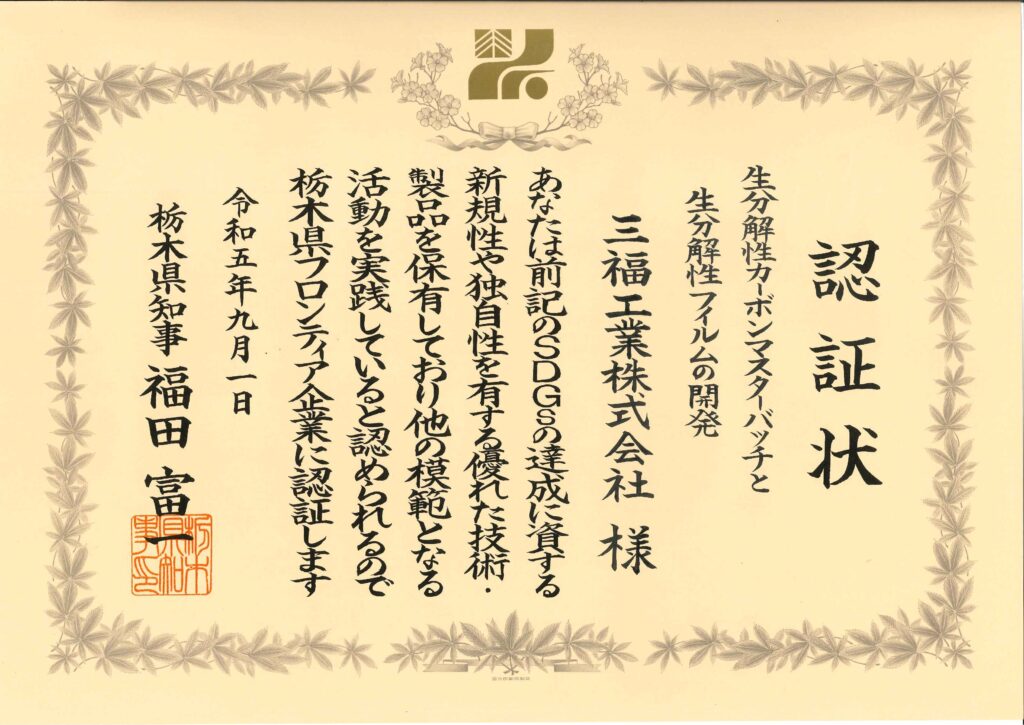 認証状
生分解性カーボンマスターバッチと
生分解性フイルムの開発
三福工業株式会社 様
あなたは前記のSDGsの達成に資する
新規性や独自性を有する優れた技術・
製品を保有しており他の模範となる
活動を実践していると認められるので
栃木県フロンティア企業に認証します
令和五年九月一日
栃木県知事 福田 富一
栃木
県知
事印